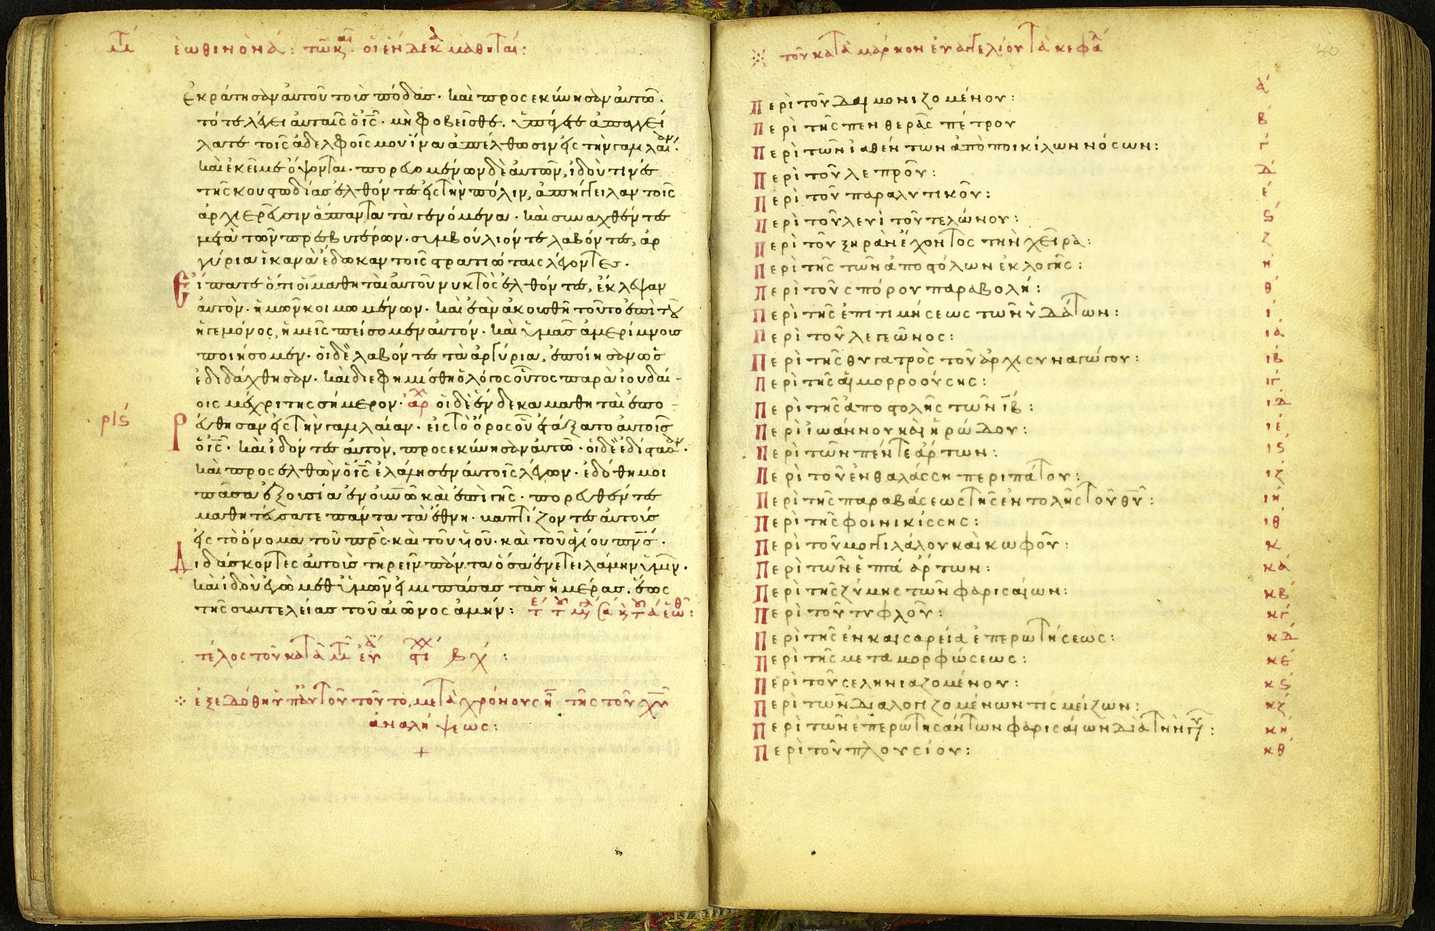 ἑωθινὸν α: τῶ κ οἱ ἕνδεκα μαθηταί:
ἐκράτησαν αὐτοῦ τοὺς πόδας· καὶ προσεκύνησαν αὐτῶ·
τότε λέγει αὐταῖς ὁ ις· μὴ φοβεῖσθε· ὑπάγετε ἀπαγγεί
λατε τοῖς ἀδελφοῖς μου ἵνα ἀπέλθωσιν εἰς τὴν γαλιλαίαν·
κἀκεῖ με ὄψονται· πορευομένων δὲ αὐτῶν, ἰδού τινες
τῆς κουστωδίας ἐλθόντες εἰς τὴν πόλιν, ἀπήγγειλαν τοῖς
ἀρχιερεῦσιν ἅπαντα τὰ γενόμενα· καὶ συναχθέντες
μετὰ τῶν πρεσβυτέρων· συμβούλιόν τε λαβόντες, ἀρ
γύρια ἱκανὰ ἔδωκαν τοῖς στρατιώταις λέγοντες·
Εἴπατε ὅτι οἱ μαθηταὶ αὐτοῦ νυκτὸς ἐλθόντες, ἔκλεψαν
αὐτὸν· ἡμῶν κοιμωμένων· καὶ ἐὰν ἀκουσθῆ τοῦτο ἐπὶ τοῦ
ἡγεμόνος, ἡμεῖς πείσομεν αὐτόν· καὶ ὑμᾶς ἀμερίμνους
ποιήσομεν· οἱ δὲ λαβόντες τὰ ἀργύρια, ἐποίησαν ὡς
ἐδιδάχθησαν· καὶ διεφημίσθη ὁ λόγος οὗτος παρὰ ἰουδαί-
οις μέχρι τῆς σήμερον· ἀρχ οἱ δὲ ἕνδεκα μαθηταὶ ἐπο-
ρις Ρεύθησαν εἰς τὴν γαλιλαίαν· εἰς τὸ ὄρος οὗ ἐτάξατο αὐτοῖς
ὁ ις· καὶ ἰδόντες αὐτὸν, προσεκύνησαν αὐτῶ· οἱ δὲ ἐδίστασαν·
καὶ προσελθὼν ὁ ις ἐλάλησεν αὐτοῖς λέγων· ἐδόθη μοι
πᾶσα ἐξουσία ἐν οὐνῶ καὶ ἐπὶ γῆς· πορευθέντες
μαθητεύσατε πάντα τὰ ἔθνη· βαπτίζοντες αὐτοὺς
εἰς τὸ ὄνομα τοῦ πρς· καὶ τοῦ υἱοῦ· καὶ τοῦ ἁγίου πνς·
Διδάσκοντες αὐτοὺς τηρεῖν πάντα ὅσα ἐνετειλάμην ὑμῖν·
καὶ ἰδοὺ ἐγὼ μεθ' ὑμῶν εἰμι πάσας τὰς ἡμέρας· ἕως
τῆς συντελείας τοῦ αἰῶνος ἀμήν:
τέλος τοῦ κατὰ μτ εὐ στι βχ:
ἐξεδόθη ὑπ' αὐτοῦ τοῦτο, μετὰ χρόνους η τῆς τοῦ χυ
ἀναλήψεως:
+
τοῦ κατὰ μάρκον εὐαγγελίου τὰ κεφα
Περὶ τοῦ δαιμονιζομένου: α
Περὶ τῆς πενθερᾶς πέτρου β
Περὶ τῶν ἰαθέντων ἀπὸ ποικίλων νόσων: γ
Περὶ τοῦ λεπροῦ: δ
Περὶ τοῦ παραλυτικοῦ: ε
Περὶ τοῦ λευὶ τοῦ τελώνου: ς
Περὶ τοῦ ξηρὰν ἔχοντος τὴν χεῖρα: ζ
Περὶ τῆς τῶν ἀποστόλων ἐκλογῆς: η
Περὶ τοῦ σπόρου παραβολή: θ
Περὶ τῆς ἐπιτιμήσεως τῶν ὑδάτων: ι
Περὶ τοῦ λεγεῶνος: ια
Περὶ τῆς θυγατρὸς τοῦ ἀρχισυναγώγου: ιβ
Περὶ τῆς αἱμορροούσης: ιγ
Περὶ τῆς ἀποστολῆς τῶν ιβ: ιδ
Περὶ ἰωάννου καὶ ἡρώδου: ιε
Περὶ τῶν πέντε ἄρτων: ις
Περὶ τοῦ ἐν θαλάσση περιπάτου: ιζ
Περὶ τῆς παραβάσεως τῆς ἐντολῆς τοῦ θυ: ιη
Περὶ τῆς φοινικίσσης: ιθ
Περὶ τοῦ μογγιλάλου καὶ κωφοῦ: κ
Περὶ τῶν ἑπτὰ ἄρτων: κα
Περὶ τῆς ζύμης τῶν φαρισαίων: κβ
Περὶ τοῦ τυφλοῦ: κγ
Περὶ τῆς ἐν καισαρεία ἐπερωτήσεως: κδ
Περὶ τῆς μεταμορφώσεως: κε
Περὶ τοῦ σεληνιαζομένου: κς
Περὶ τῶν διαλογιζομένων τίς μείζων: κζ
Περὶ τῶν ἐπερωτησάντων φαρισαίων διὰ τὴν γυ: κη
Περὶ τοῦ πλουσίου: κθ